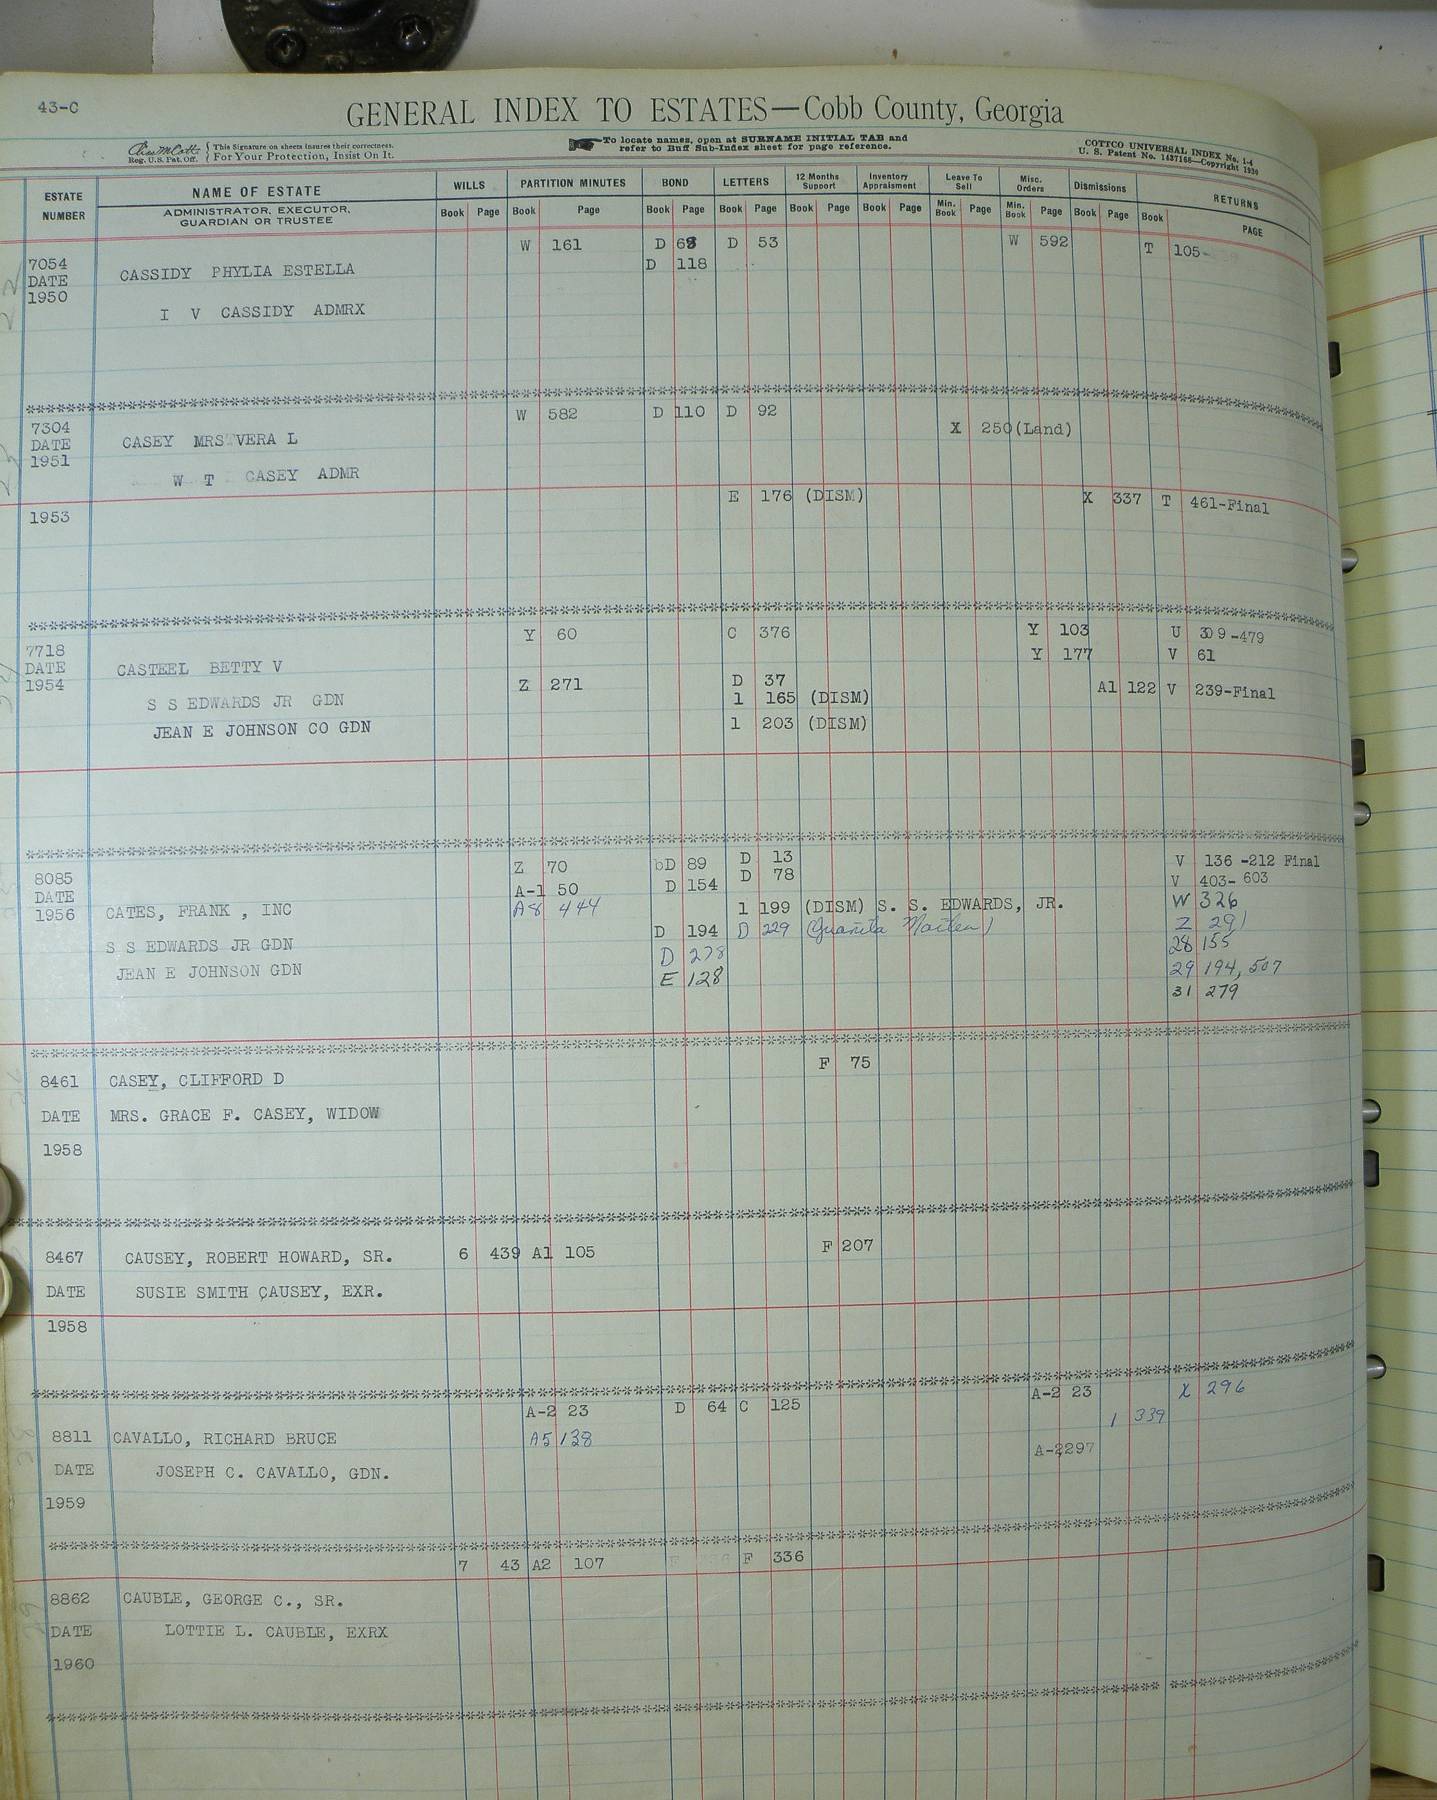 43-C
GENERAL INDEX TO ESTATES—Cobb County, Georgia
This Signature on sheets insures their correctness.
Reg. U.S. Pat. Off. For Your Protection, Insist On It.
To locate names, open at SURNAME INITIAL TAB and
refer to Buff Sub-Index sheet for page reference.
COTTCO UNIVERSAL INDEX No. 1-4
U. S. Patent No. 1437168—Copyright 1930
ESTATE NUMBER NAME OF ESTATE WILLS PARTITION MINUTES BOND LETTERS 12 Months Support Inventory Appraisment Leave To Sell Misc. Orders Dismissions RETURNS
ADMINISTRATOR, EXECUTOR, GUARDIAN OR TRUSTEE Book Page Book Page Book Page Book Page Book Page Book Page Min. Book Page Min. Book Page Book Page Book PAGE
W 161 D 68 D 53 W 592 T 105-
7054 D 118
DATE CASSIDY PHYLIA ESTELLA
1950
I V CASSIDY ADMRX
W 582 D 110 D 92
7304 X 250(Land)
DATE CASEY MRS VERA L
1951
W T CASEY ADMR
E 176 (DISM) X 337 T 461-Final
1953
Y 60 C 376 Y 103 U 309-479
7718 Y 177 V 61
DATE CASTEEL BETTY V
1954 Z 271 D 37 A1 122 V 239-Final
S S EDWARDS JR GDN 1 165 (DISM)
JEAN E JOHNSON CO GDN 1 203 (DISM)
Z 70 bD 89 D 13 V 136 -212 Final
8085 A-1 50 D 154 D 78 V 403- 603
DATE
1956 CATES, FRANK , INC A8 444 1 199 (DISM) S. S. EDWARDS, JR. W 326
D 194 D 229 Z 291
S S EDWARDS JR GDN D 278 28 155
JEAN E JOHNSON GDN E 128 29 194, 507
31 279
F 75
8461 CASEY, CLIFFORD D
DATE MRS. GRACE F. CASEY, WIDOW
1958
8467 CAUSEY, ROBERT HOWARD, SR. 6 439 A1 105 F 207
DATE SUSIE SMITH CAUSEY, EXR.
1958
A-2 23 D 64 C 125 A-2 23 X 296
1 339
8811 CAVALLO, RICHARD BRUCE A5 138 A-2297
DATE JOSEPH C. CAVALLO, GDN.
1959
7 43 A2 107 F 336
8862 CAUBLE, GEORGE C., SR.
DATE LOTTIE L. CAUBLE, EXRX
1960